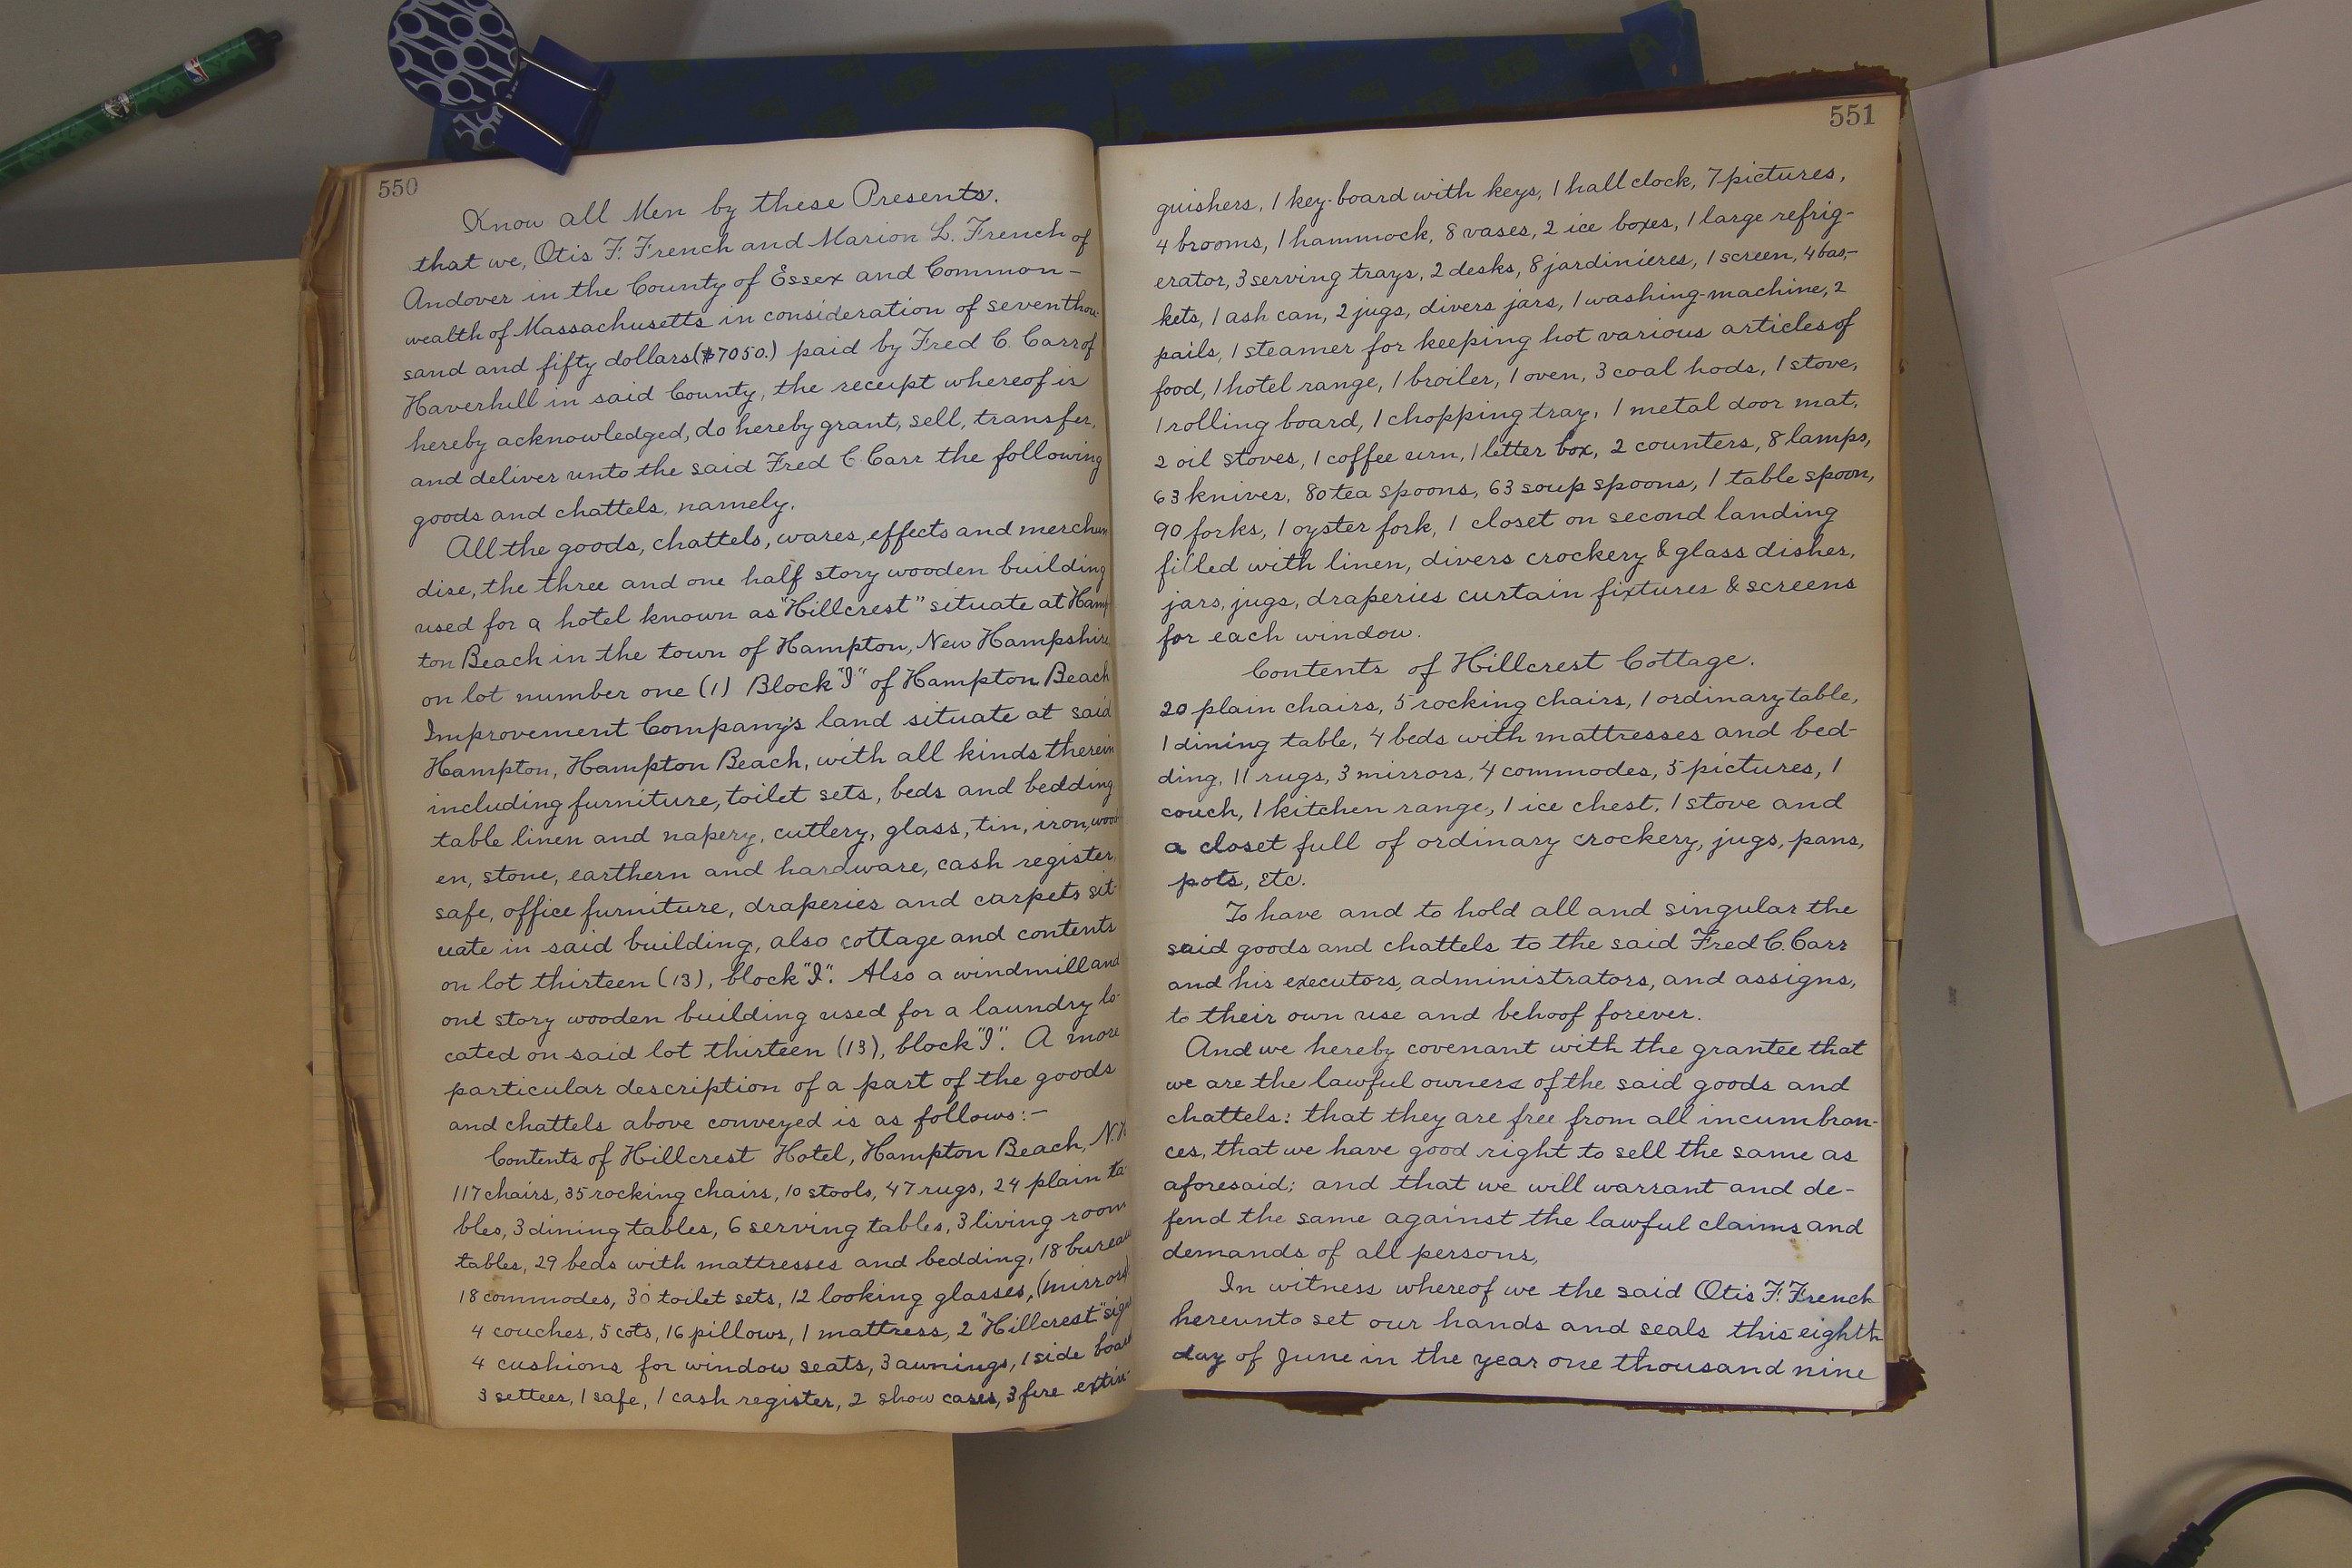 550
Know all Men by these Presents.
that we, Otis F. French and Marion L. French of
Andover in the County of Essex and Common-
wealth of Massachusetts in consideration of seven thou-
sand and fifty dollars ($7050.) paid by Fred C. Carr of
Haverhill in said County, the receipt whereof is
hereby acknowledged, do hereby grant, sell, transfer,
and deliver unto the said Fred C Carr the following
goods and chattels, namely.
All the goods, chattels, wares, effects and merchan
dise, the three and one half story wooden building
used for a hotel known as "Hillcrest" situate at Hamp
ton Beach in the town of Hampton, New Hampshire
on lot number one (1) Block "I" of Hampton Beach
Improvement Company's land situate at said
Hampton, Hampton Beach, with all kinds therein
including furniture, toilet sets, beds and bedding
table linen and napery, cutlery, glass, tin, iron, wood-
en, stone, earthern and hardware, cash register,
safe, office furniture, draperies and carpets sit-
uate in said building, also cottage and contents
on lot thirteen (13), block "I". Also a windmill and
one story wooden building used for a laundry lo-
cated on said lot thirteen (13), block "I". A more
particular description of a part of the goods
and chattels above conveyed is as follows:-
Contents of Hillcrest Hotel, Hampton Beach, N.H
117 chairs, 35 rocking chairs, 10 stools, 47 rugs, 24 plain ta-
bles, 3 dining tables, 6 serving tables, 3 living room
tables, 29 beds with mattresses and bedding, 18 bureau
18 commodes, 30 toilet sets, 12 looking glasses, (mirrors)
4 couches, 5 cots, 16 pillows, 1 mattress, 2 "Hillcrest" sign
4 cushions for window seats, 3 awnings, 1 side board
3 settees, 1 safe, 1 cash register, 2 show cases, 3 fire extin-
551
guishers, 1 key-board with keys, 1 hall clock, 7 pictures,
4 brooms, 1 hammock, 8 vases, 2 ice boxes, 1 large refrig-
erator, 3 serving trays, 2 desks, 8 jardinieres, 1 screen, 4 bas-
kets, 1 ash can, 2 jugs, divers jars, 1 washing-machine, 2
pails, 1 steamer for keeping hot various articles of
food, 1 hotel range, 1 broiler, 1 oven, 3 coal hods, 1 stove,
1 rolling board, 1 chopping tray, 1 metal door mat,
2 oil stoves, 1 coffee urn, 1 letter box, 2 counters, 8 lamps,
63 knives, 80 tea spoons, 63 soup spoons, 1 table spoon,
90 forks, 1 oyster fork, 1 closet on second landing
filled with linen, divers crockery & glass dishes,
jars, jugs, draperies curtain fixtures & screens
for each window.
Contents of Hillcrest Cottage.
20 plain chairs, 5 rocking chairs, 1 ordinary table,
1 dining table, 4 beds with mattresses and bed-
ding, 11 rugs, 3 mirrors, 4 commodes, 5 pictures, 1
couch, 1 kitchen range, 1 ice chest, 1 stove and
a closet full of ordinary crockery, jugs, pans,
pots, etc.
To have and to hold all and singular the
said goods and chattels to the said Fred C. Carr
and his executors, administrators, and assigns,
to their own use and behoof forever.
And we hereby covenant with the grantee that
we are the lawful owners of the said goods and
chattels: that they are free from all incumbran-
ces, that we have good right to sell the same as
aforesaid; and that we will warrant and de-
fend the same against the lawful claims and
demands of all persons,
In witness whereof we the said Otis F. French
hereunto set our hands and seals this eighth
day of June in the year one thousand nine